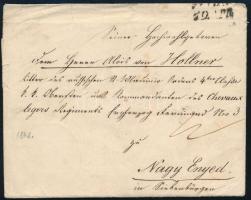 Seiner Hochwohlgeboren
dem Herrn Alois von Hollner
Ritter des russischen St Wladimir Ordens 4ter Classe
k. k. Obersten und Kommandanten des Chevaux
legers Regiments Erzherzog Ferdinand No 3
zu
Nagy Enyed
in Siebenbürgen